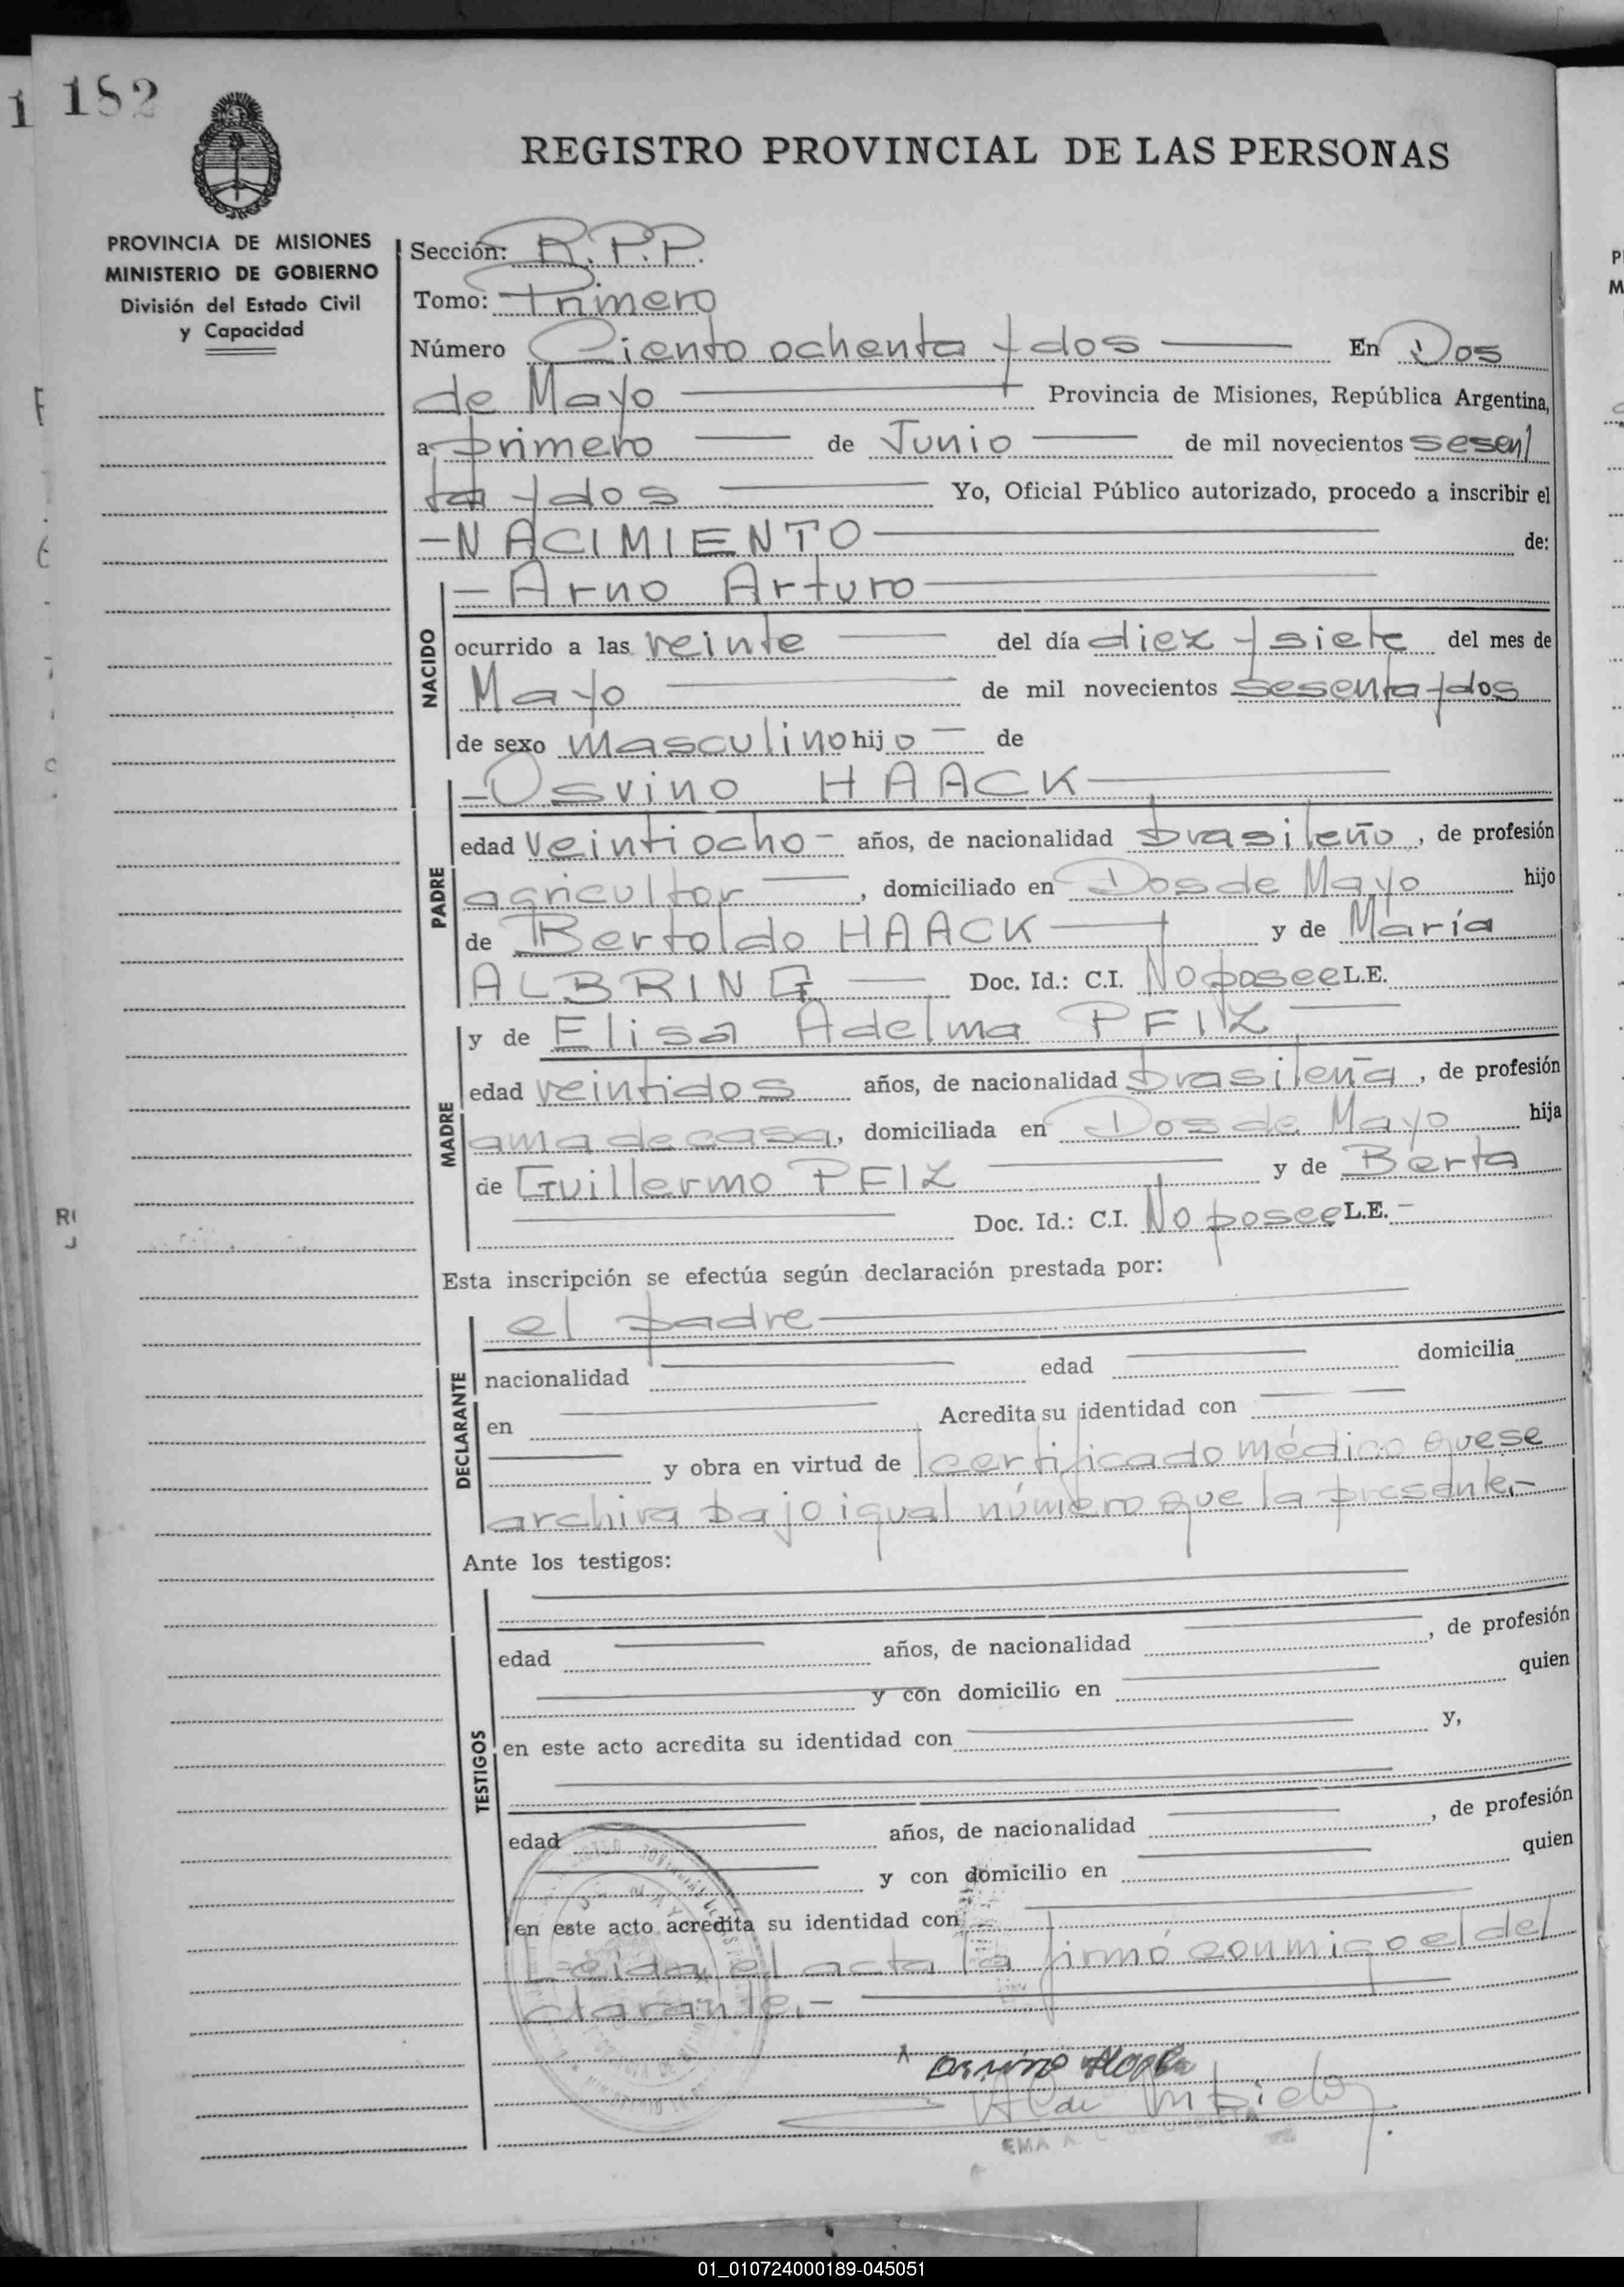 1 182
REGISTRO PROVINCIAL DE LAS PERSONAS
PROVINCIA DE MISIONES
MINISTERIO DE GOBIERNO
División del Estado Civil
y Capacidad
Sección: R.P.P.
Tomo: Primero
Número Ciento ochenta y dos En Dos
de Mayo Provincia de Misiones, República Argentina,
a primero de Junio de mil novecientos sesen
ta y dos Yo, Oficial Público autorizado, procedo a inscribir el
NACIMIENTO de:
NACIDO
Arno Arturo
ocurrido a las veinte del día diez y siete del mes de
Mayo de mil novecientos sesenta y dos
de sexo masculino hijo de
PADRE
Osvino HAACK
edad veintiocho años, de nacionalidad brasileño, de profesión
agricultor, domiciliado en Dos de Mayo hijo
de Bertoldo HAACK y de María
ALBRING Doc. Id.: C.I. No posee L.E.
MADRE
y de Elisa Adelma PFIZ
edad veintidos años, de nacionalidad brasileña, de profesión
ama de casa, domiciliada en Dos de Mayo hija
de Guillermo PFIZ y de Berta
Doc. Id.: C.I. No posee L.E. -
Esta inscripción se efectúa según declaración prestada por:
DECLARANTE
el padre
nacionalidad edad domicilia
en Acredita su identidad con
y obra en virtud de certificado médico que se
archiva bajo igual número que la presente.-
Ante los testigos:
TESTIGOS
edad años, de nacionalidad , de profesión
y con domicilio en quien
en este acto acredita su identidad con y,
edad años, de nacionalidad , de profesión
y con domicilio en quien
en este acto acredita su identidad con
Leida el acta la firmó conmigo el de
clarante.-
Osvino Haack
EMA A.
01_010724000189-045051